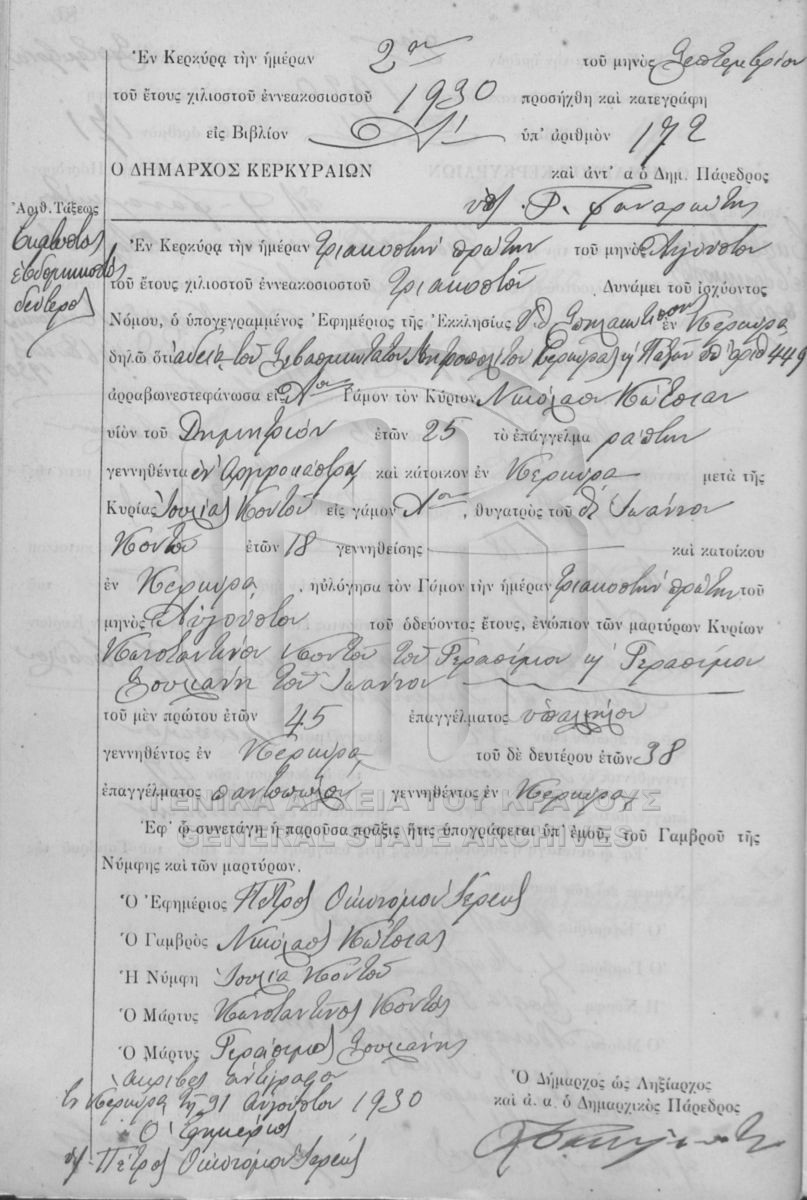 Ἐν Κερκύρᾳ τὴν ἡμέραν 2αν τοῦ μηνὸς Σεπτεμβρίου
τοῦ ἔτους χιλιοστοῦ ἐννεακοσιοστοῦ 1930 προσήχθη καὶ κατεγράφη
εἰς Βιβλίον Α' ὑπ' ἀριθμὸν 172
Ο ΔΗΜΑΡΧΟΣ ΚΕΡΚΥΡΑΙΩΝ καὶ ἀντ' α ὁ Δημ. Πάρεδρος
Ἀριθ. Τάξεως
Ἑκατοστὸς
ἑβδομηκοστὸς
δεύτερος
Ἐν Κερκύρᾳ τὴν ἡμέραν τριακοστὴν πρώτην τοῦ μηνὸς Αὐγούστου
τοῦ ἔτους χιλιοστοῦ ἐννεακοσιοστοῦ τριακοστοῦ Δυνάμει τοῦ ἰσχύοντος
Νόμου, ὁ ὑπογεγραμμένος Ἐφημέριος τῆς Ἐκκλησίας Υ.Θ. Σπηλαιωτίσσης ἐν Κερκύρᾳ
δηλῶ ὅτι ἀδείᾳ τοῦ Σεβασμιωτάτου Μητροπολίτου Κερκύρας ὑπ' ἀριθ 449
ἀρραβωνεστεφάνωσα εἰς Αον Γάμον τὸν Κύριον Νικόλαον Κώτσιαν
υἱὸν τοῦ Δημητρίου ἐτῶν 25 τὸ ἐπάγγελμα ράπτην
γεννηθέντα ἐν Αργυροκάστρῳ καὶ κάτοικον ἐν Κερκύρᾳ μετὰ τῆς
Κυρίας Ἰουλίας Κοντοῦ εἰς γάμον Αον, θυγατρὸς τοῦ Ἰωάννου
Κοντοῦ ἐτῶν 18 γεννηθείσης καὶ κατοίκου
ἐν Κερκύρᾳ, ηὐλόγησα τὸν Γάμον τὴν ἡμέραν τριακοστὴν πρώτην τοῦ
μηνὸς Αὐγούστου τοῦ ὁδεύοντος ἔτους, ἐνώπιον τῶν μαρτύρων Κυρίων
Κωνσταντίνου Κοντοῦ τοῦ Γερασίμου ϗ Γερασίμου
Σουκάνη τοῦ Ἰωάννου
τοῦ μὲν πρώτου ἐτῶν 45 ἐπαγγέλματος ὑπαλλήλου
γεννηθέντος ἐν Κερκύρᾳ τοῦ δὲ δευτέρου ἐτῶν 38
ἐπαγγέλματος παντοπώλου γεννηθέντος ἐν Κερκύρᾳ
ΓΕΝΙΚΑ ΑΡΧΕΙΑ ΤΟΥ ΚΡΑΤΟΥΣ
GENERAL STATE ARCHIVES
Ἐφ' ᾧ συνετάγη ἡ παροῦσα πρᾶξις ἥτις ὑπογράφεται ὑπ' ἐμοῦ, τοῦ Γαμβροῦ τῆς
Νύμφης καὶ τῶν μαρτύρων.
Ὁ Ἐφημέριος Πέτρος Οἰκονόμου Ἱερεὺς
Ὁ Γαμβρὸς Νικόλαος Κώτσιας
Ἡ Νύμφη Ἰουλία Κοντοῦ
Ὁ Μάρτυς Κωνσταντῖνος Κοντὸς
Ὁ Μάρτυς Γεράσιμος Σουκάνης
Ἀκριβὲς ἀντίγραφον
Ἐν Κερκύρᾳ τῇ 31 Αὐγούστου 1930
Ὁ Ἐφημέριος
Πέτρος Οἰκονόμου Ἱερεὺς
Ὁ Δήμαρχος ὡς Ληξίαρχος
καὶ ἀ. α. ὁ Δημαρχικὸς Πάρεδρος